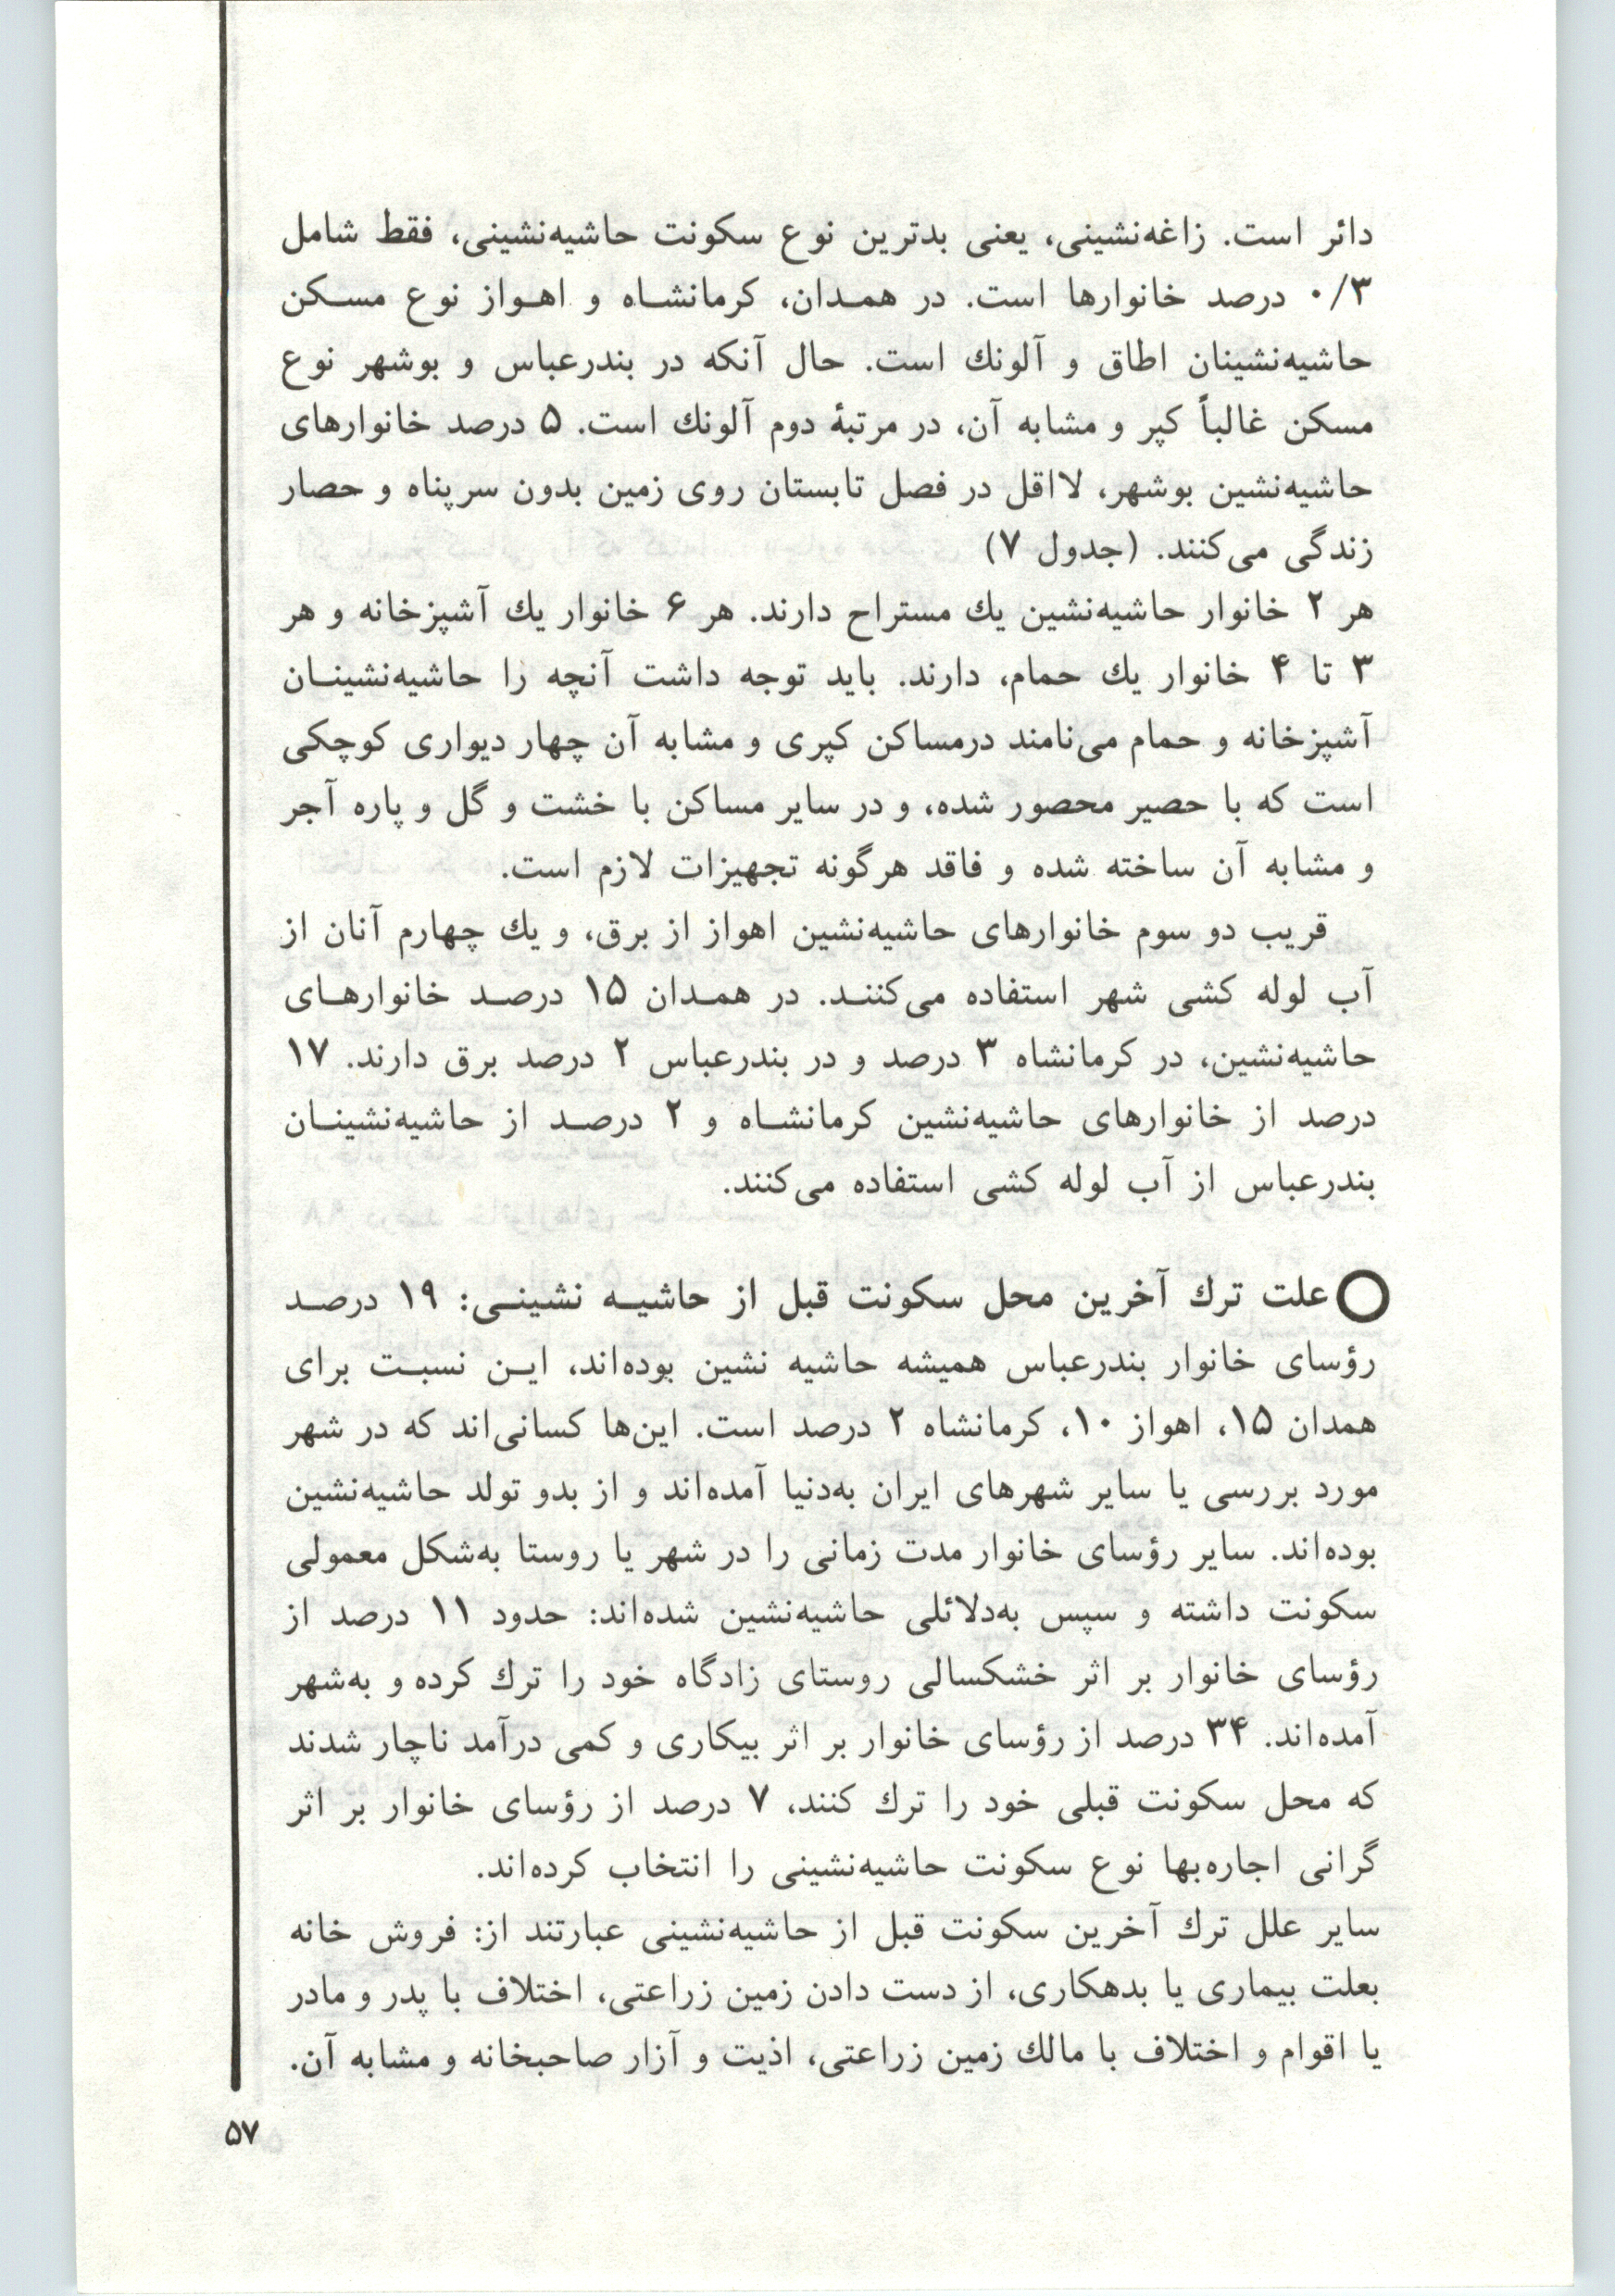 دائر است. زاغه‌نشینی، یعنی بدترین نوع سکونت حاشیه‌نشینی، فقط شامل
۰/۳ درصد خانوارها است. در همـدان، کرمانشـاه و اهـواز نوع مسـکن
حاشیه‌نشینان اطاق و آلونك است. حال آنکه در بندرعباس و بوشهر نوع
مسکن غالباً کپر و مشابه آن، در مرتبهٔ دوم آلونك است. ۵ درصد خانوارهای
حاشیه‌نشین بوشهر، لااقل در فصل تابستان روی زمین بدون سرپناه و حصار
زندگی می‌کنند. (جدول ۷)
هر ۲ خانوار حاشیه‌نشین یك مستراح دارند. هر ۶ خانوار یك آشپزخانه و هر
۳ تا ۴ خانوار یك حمام، دارند. باید توجه داشت آنچه را حاشیه‌نشینـان
آشپزخانه و حمام می‌نامند درمساکن کپری و مشابه آن چهار دیواری کوچکی
است که با حصیر محصور شده، و در سایر مساکن با خشت و گل و پاره آجر
و مشابه آن ساخته شده و فاقد هرگونه تجهیزات لازم است.
قریب دو سوم خانوارهای حاشیه‌نشین اهواز از برق، و یك چهارم آنان از
آب لوله کشی شهر استفاده می‌کننـد. در همـدان ۱۵ درصـد خانوارهـای
حاشیه‌نشین، در کرمانشاه ۳ درصد و در بندرعباس ۲ درصد برق دارند. ۱۷
درصد از خانوارهای حاشیه‌نشین کرمانشـاه و ۲ درصـد از حاشیه‌نشینـان
بندرعباس از آب لوله کشی استفاده می‌کنند.
علت ترك آخرین محل سکونت قبل از حاشیـه نشینـی: ۱۹ درصـد
رؤسای خانوار بندرعباس همیشه حاشیه نشین بوده‌اند، ایـن نسبـت برای
همدان ۱۵، اهواز ۱۰، کرمانشاه ۲ درصد است. این‌ها کسانی‌اند که در شهر
مورد بررسی یا سایر شهرهای ایران به‌دنیا آمده‌اند و از بدو تولد حاشیه‌نشین
بوده‌اند. سایر رؤسای خانوار مدت زمانی را در شهر یا روستا به‌شکل معمولی
سکونت داشته و سپس به‌دلائلی حاشیه‌نشین شده‌اند: حدود ۱۱ درصد از
رؤسای خانوار بر اثر خشکسالی روستای زادگاه خود را ترك کرده و به‌شهر
آمده‌اند. ۳۴ درصد از رؤسای خانوار بر اثر بیکاری و کمی درآمد ناچار شدند
که محل سکونت قبلی خود را ترك کنند، ۷ درصد از رؤسای خانوار بر اثر
گرانی اجاره‌بها نوع سکونت حاشیه‌نشینی را انتخاب کرده‌اند.
سایر علل ترك آخرین سکونت قبل از حاشیه‌نشینی عبارتند از: فروش خانه
بعلت بیماری یا بدهکاری، از دست دادن زمین زراعتی، اختلاف با پدر و مادر
یا اقوام و اختلاف با مالك زمین زراعتی، اذیت و آزار صاحبخانه و مشابه آن.
۵۷